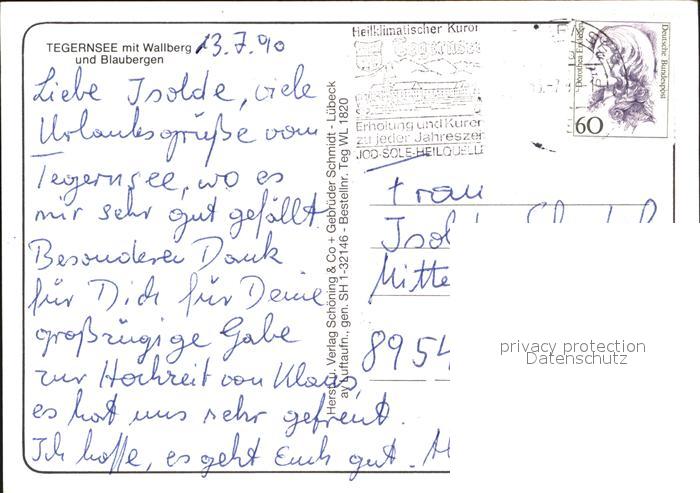 TEGERNSEE mit Wallberg
und Blaubergen
13.7.90
Liebe Isolde, viele
Urlaubsgrüße vom
Tegernsee, wo es
mir sehr gut gefällt.
Besonderen Dank
für Dich für Deine
großzügige Gabe
zur Hochzeit von Klaus,
es hat uns sehr gefreut.
Ich hoffe, es geht Euch gut.
Herst. u. Verlag Schöning & Co + Gebrüder Schmidt - Lübeck
ay Luftaufn., gen. SH 1-32146 - Bestellnr. Teg WL 1820
Heilklimatischer Kuror
Tegernsee
Erholung und Kuren
zu jeder Jahreszei
JOD-SOLE-HEILQUELLE
Deutsche Bundespost
Dorothea Erxleben
60
Frau
Isol
Mitte
8954
privacy protection
Datenschutz